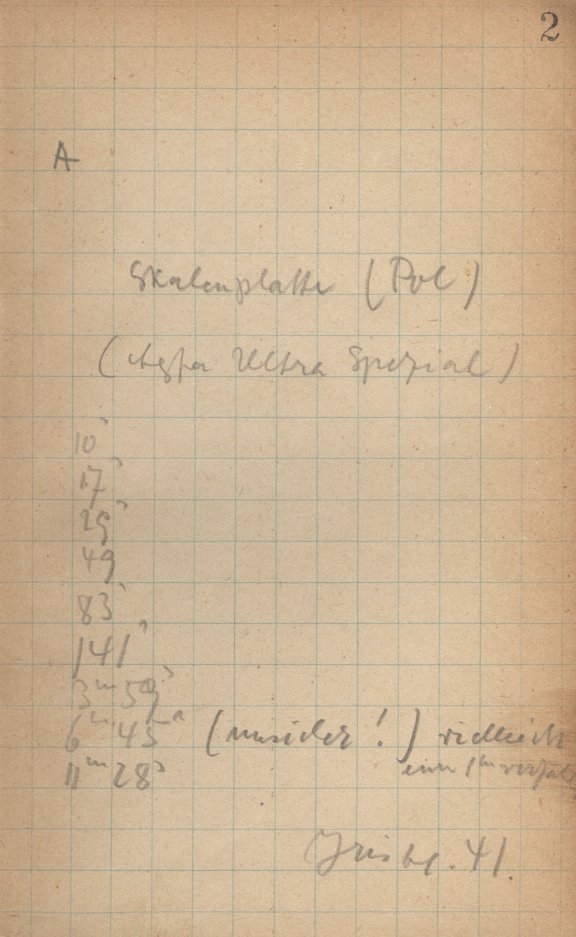 2
A
Skalenplatte (Pol)
(Agfa Ultra Spezial)
10ˢ
17ˢ
29ˢ
49
83ˢ
141ˢ
3ᵐ 59ˢ
6ᵐ 45ˢ (unsicher!) vielleicht
um 1ᵐ
11ᵐ 28ˢ
41